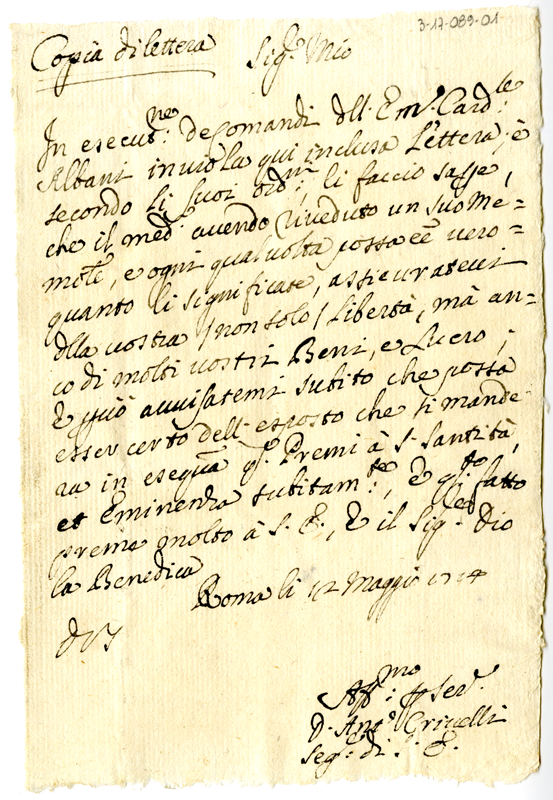 3-17-089-01
Copia di lettera Sig.r Mio
In esecut.ne: de Comandi dell. Em.o Card.le:
Albani invio la qui inclusa lettera; è
secondo li suoi ord.ni; li faccio sapere,
che il med.o avendo riveduto un suo Me=
mor.le, e ogni qualvolta possa eẽ vero=
quanto li significate, assicuratevi
della vostra /non solo/ libertà, mà an=
co di molti vostri Beni, e Lucro;
E però avvisatemi subito che possa
esser certo dell'esposto che si mande
ra in esequz.a Premi à S. Santità,
et Eminenza subitam.te:, è q.to fatto
preme molto à S. E., E il Sig.r Dio
la Benedica
Roma li 12 Maggio 1714
D V S
Aff.mo: Ser.r
D. Ant.o Crivelli
Seg.o di S. E.